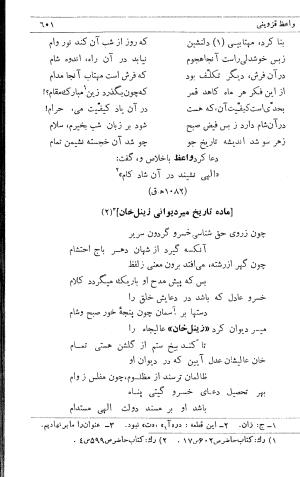 واعظ قزوینی ۶۵۱
بنا کرد، مهتابیی (۱) دلنشین که روز از شب آن کند نور وام
زبس خوشدلی راست آنجا هجوم نیابد در آن راه، اندوه شام
در آن فرش، دیگر تکلف بود که فرش است مهتاب آنجا مدام
از این فکر هر ماه کاهد قمر که چون بگذرد زین مبارک مقام؟!
بحدی است کیفیت آن، که هست در آن یاد کیفیت می، حرام!
در آن شام دارد ز بس فیض صبح شود بر زبان شب بخیرم، سلام
زهر سو شد اندیشه تاریخ جو چو شد آن خجسته نشیمن تمام
دعا کرد واعظ باخلاص و، گفت:
«الهی نشیند در آن شاد کام»۲
(۱۰۸۲ه‍ ق)
[ماده تاریخ میر دیوانی زینل خان]۳ (۲)
چون زروی حق شناسی خسرو گردون سریر
آنکسه گیرد از شهان دهر باج احتشام
چون گهر از رشته، می‌افتد برون معنی ز لفظ
بس که پیش مدح او باریک میگردد کلام
خسرو عادل که باشد در دعایش خلق را
دستها بر آسمان چون پنجهٔ خور صبح و شام
میر دیوان کرد «زینل خان» عالیجاه را
تا کند بیخ ستم از گلشن هستی تمام
خان عالیشان عدل آیین که در دیوان او
ظالمان ترسند از مظلوم، چون مفلس ز وام
بهر تحصیل دعای خسرو گیتی پناه
باشد او بر مسند دولت الهی مستدام
۱- ج: زان. ۲- این قطعه: در «آ»، «ت» نبود. ۳- عنوان را ما برنهادیم.
(۱) رك: کتاب حاضر ص ۶۰۲ س ۱۷. (۲) رك: کتاب حاضر ص ۵۹۹ س ۴.